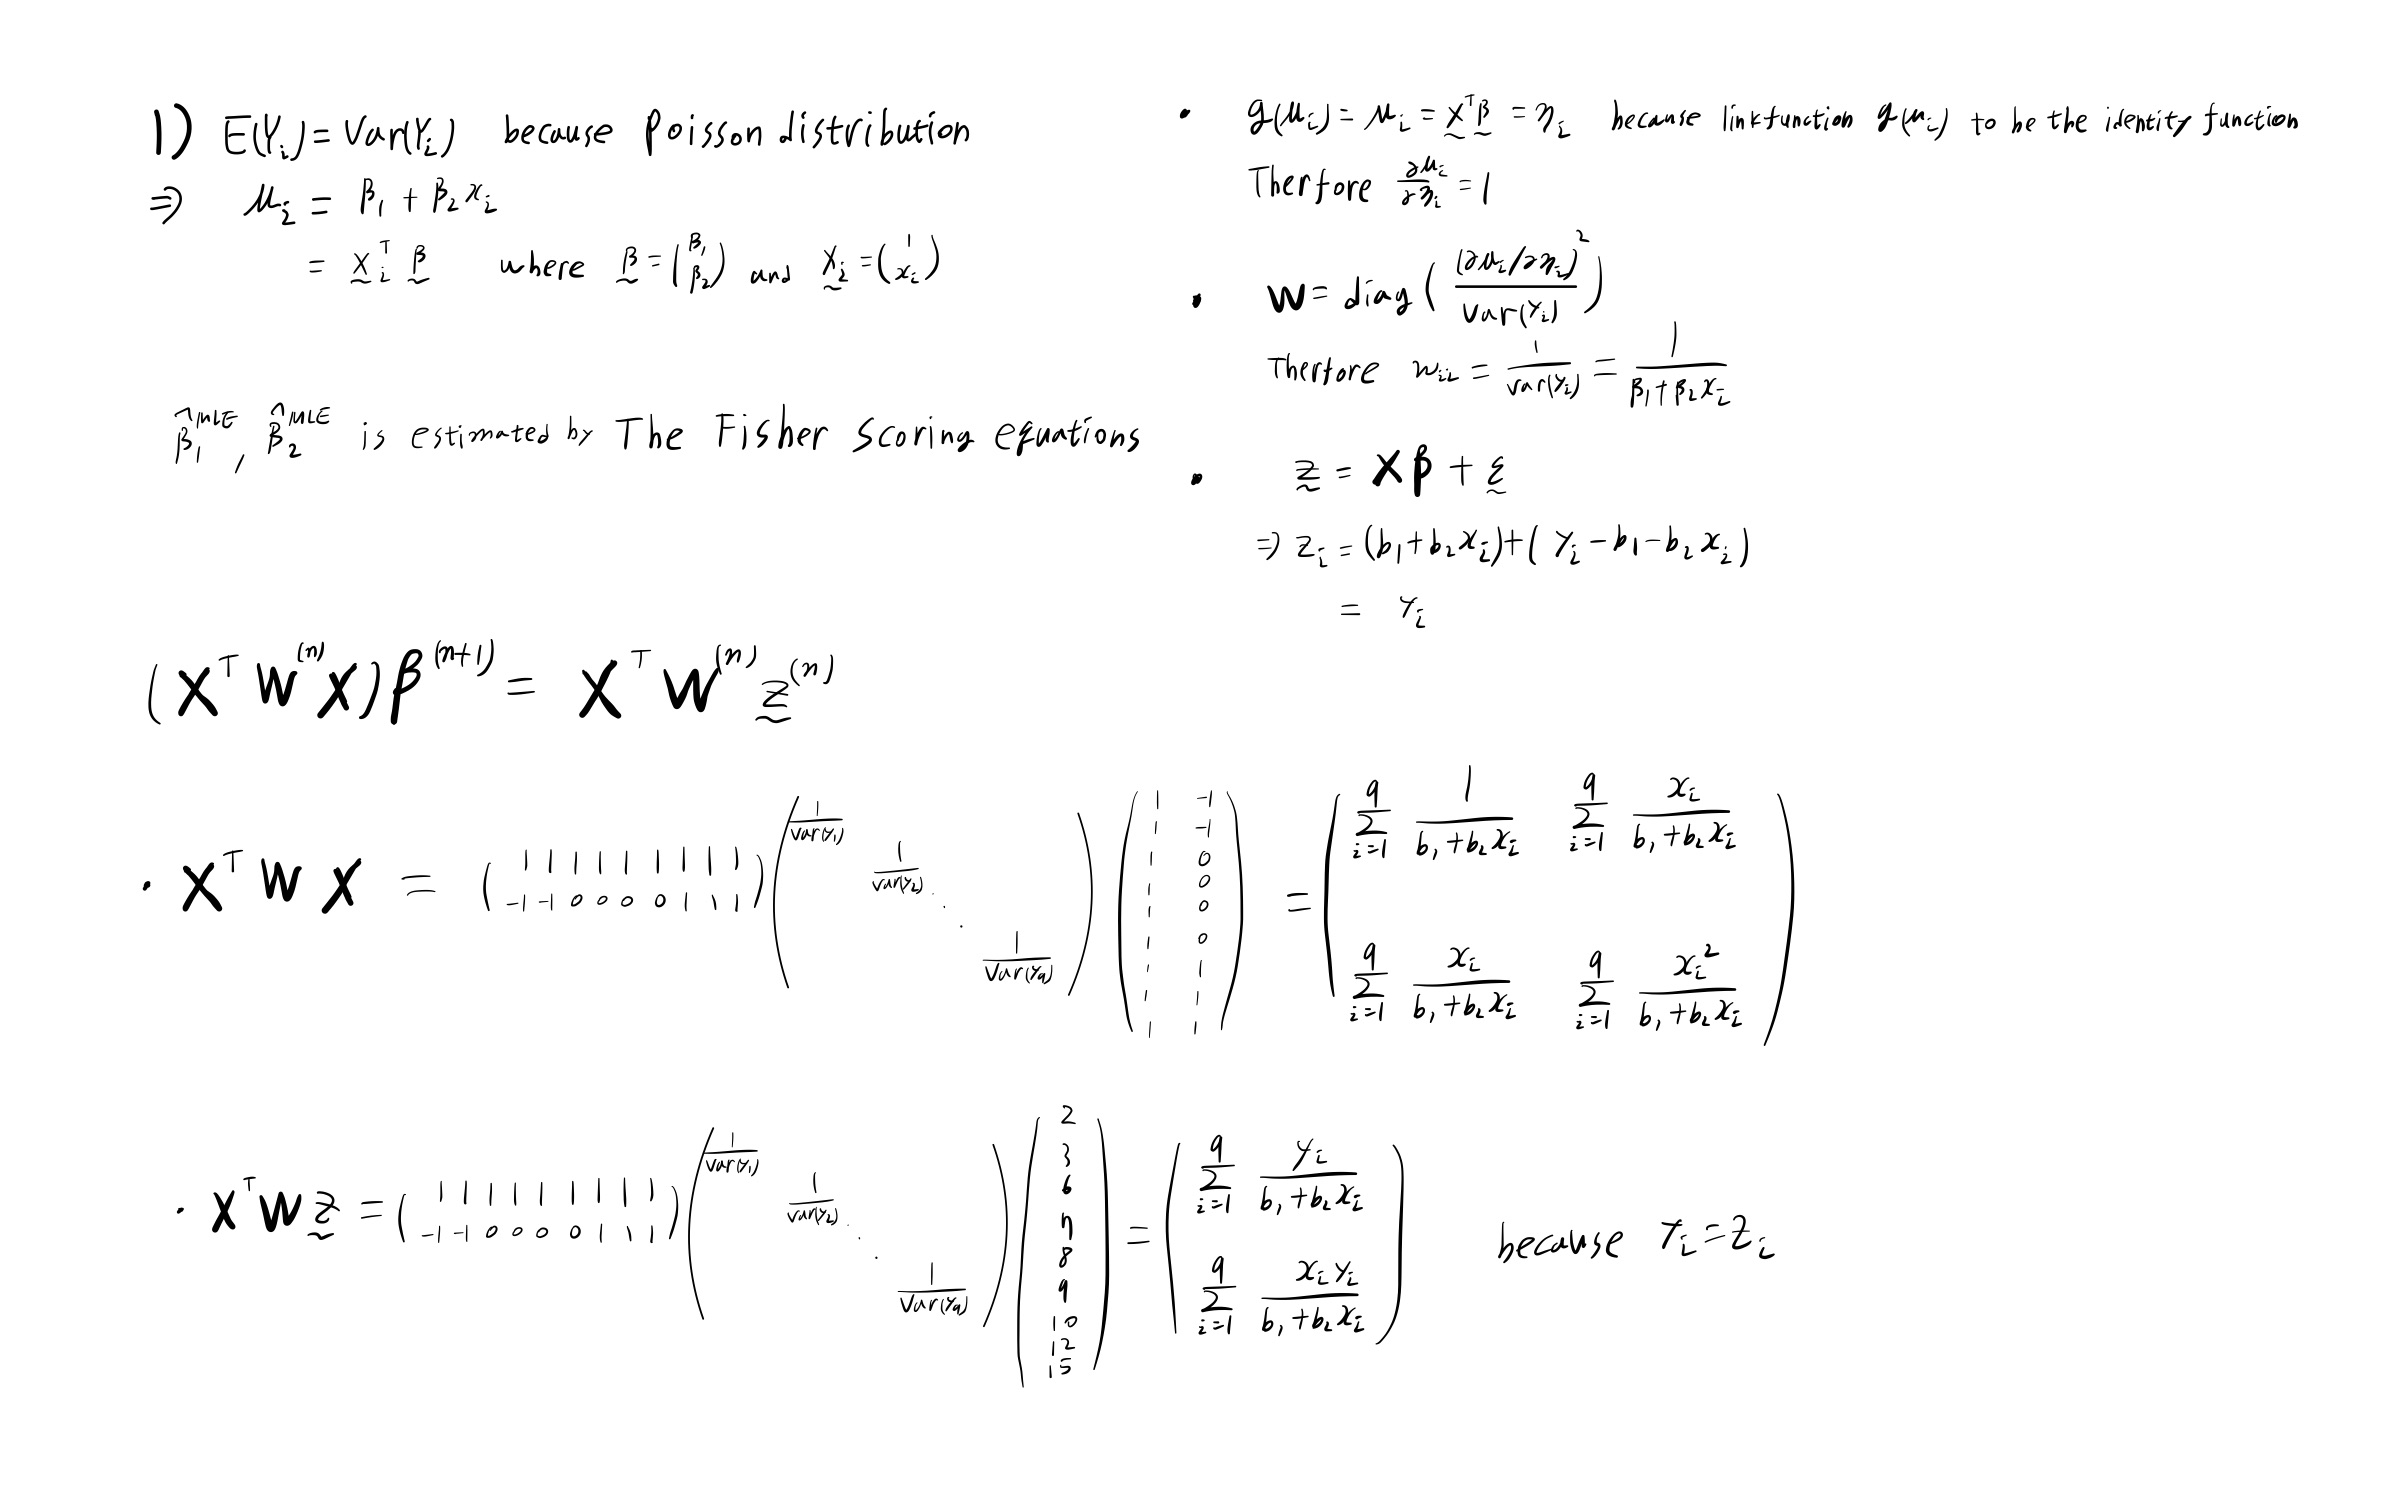 1) E(Yᵢ) = Var(Yᵢ) because Poisson distribution
⇒ μᵢ = β₁ + β₂xᵢ
= x̰ᵢᵀ β̰ where β̰ = (β₁ β₂) and x̰ᵢ = (1 xᵢ)
β̂₁ᴹᴸᴱ, β̂₂ᴹᴸᴱ is estimated by The Fisher Scoring equations
(Xᵀ W⁽ⁿ⁾ X) β⁽ⁿ⁺¹⁾ = Xᵀ W⁽ⁿ⁾ z̰⁽ⁿ⁾
• g(μᵢ) = μᵢ = x̰ᵀβ̰ = ηᵢ because linkfunction g(μᵢ) to be the identity function
Therfore ∂μᵢ/∂ηᵢ = 1
• W = diag( (∂μᵢ/∂ηᵢ)² / Var(Yᵢ) )
Therfore wᵢᵢ = 1/Var(Yᵢ) = 1/(β₁ + β₂xᵢ)
• z̰ = Xβ + ε̰
⇒ zᵢ = (b₁ + b₂xᵢ) + (yᵢ − b₁ − b₂xᵢ)
= Yᵢ
· XᵀWX = (1 1 1 1 1 1 1 1 1 ; −1 −1 0 0 0 0 1 1 1) (1/Var(Y₁) 1/Var(Y₂) ⋱ 1/Var(Y₉)) (1 −1 ; 1 −1 ; 1 0 ; 1 0 ; 1 0 ; 1 0 ; 1 1 ; 1 1 ; 1 1) = (Σᵢ₌₁⁹ 1/(b₁+b₂xᵢ) Σᵢ₌₁⁹ xᵢ/(b₁+b₂xᵢ) ; Σᵢ₌₁⁹ xᵢ/(b₁+b₂xᵢ) Σᵢ₌₁⁹ xᵢ²/(b₁+b₂xᵢ))
· XᵀWz̰ = (1 1 1 1 1 1 1 1 1 ; −1 −1 0 0 0 0 1 1 1) (1/Var(Y₁) 1/Var(Y₂) ⋱ 1/Var(Y₉)) (2 3 6 7 8 9 10 12 15) = (Σᵢ₌₁⁹ yᵢ/(b₁+b₂xᵢ) ; Σᵢ₌₁⁹ xᵢyᵢ/(b₁+b₂xᵢ)) because Yᵢ = zᵢ